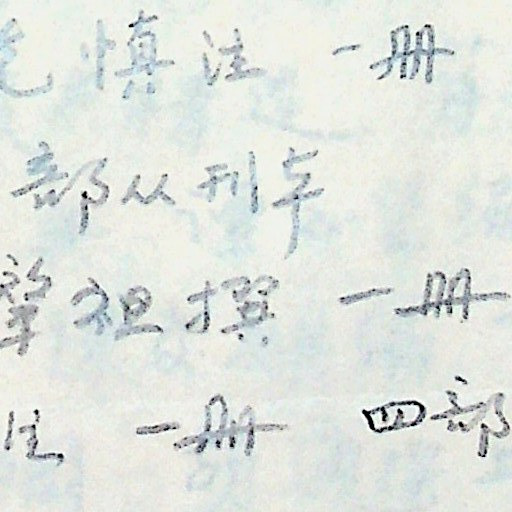 慎注 一册
部丛刊本
肇祖撰 一册
注 一册 四部